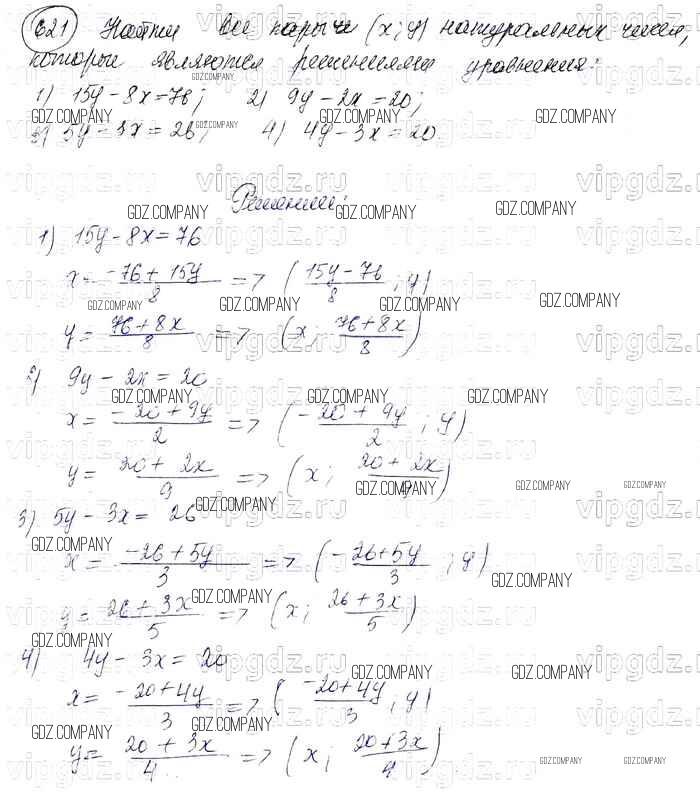 621 Найти все пары (x; y) натуральных чисел,
которые являются решениями уравнения:
1) 15y - 8x = 76; 2) 9y - 2x = 20;
3) 5y - 3x = 26; 4) 4y - 3x = 20.
Решение:
1) 15y - 8x = 76
x = (-76 + 15y)/8 => ((15y - 76)/8; y)
y = (76 + 8x)/8 => (x; (76 + 8x)/8)
2) 9y - 2x = 20
x = (-20 + 9y)/2 => ((-20 + 9y)/2; y)
y = (20 + 2x)/9 => (x; (20 + 2x)/9)
3) 5y - 3x = 26
x = (-26 + 5y)/3 => ((-26 + 5y)/3; y)
y = (26 + 3x)/5 => (x; (26 + 3x)/5)
4) 4y - 3x = 20
x = (-20 + 4y)/3 => ((-20 + 4y)/3; y)
y = (20 + 3x)/4 => (x; (20 + 3x)/4)
GDZ.COMPANY
vipgdz.ru